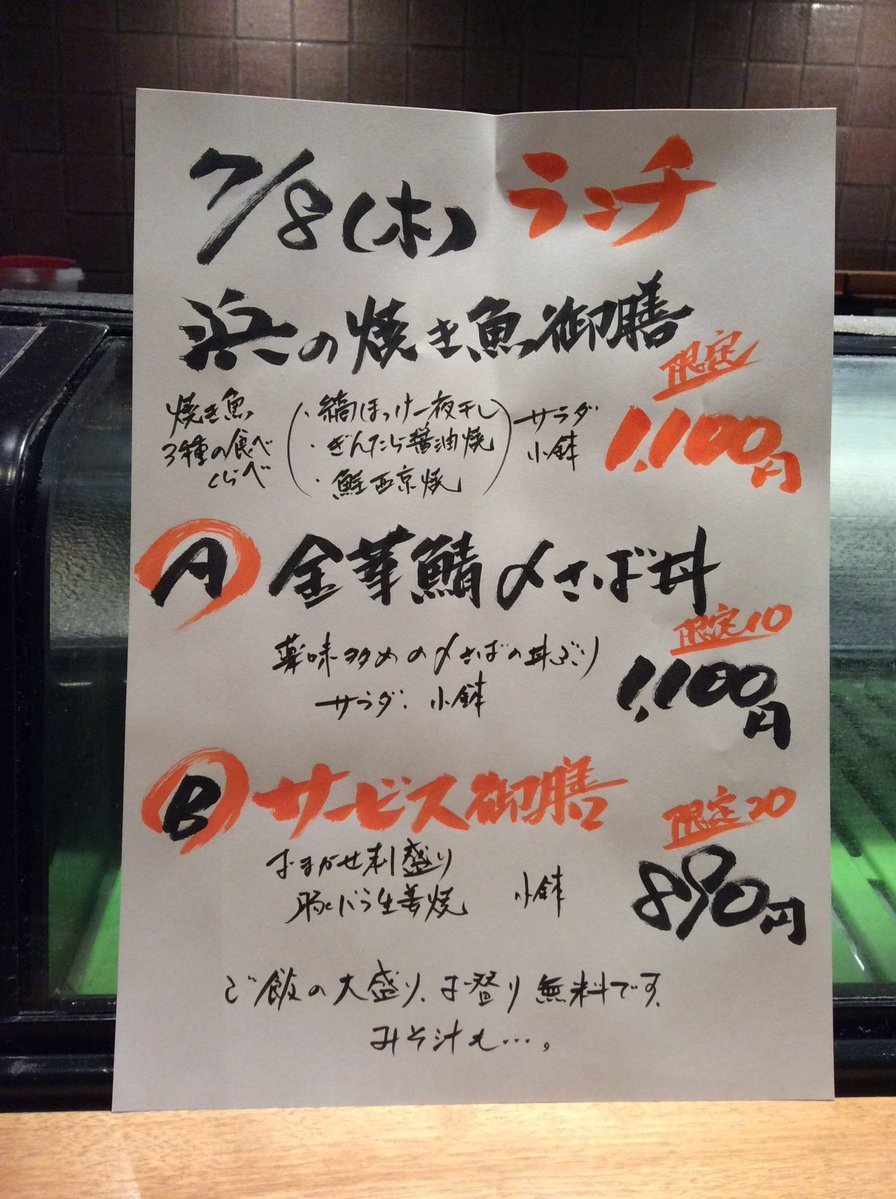 7/8(木) ランチ
浜の焼き魚御膳
限定
焼き魚
3種の食べ
くらべ
(・縞ほっけ一夜干し
・ぎんだら醤油焼
・鮭西京焼)
サラダ
小鉢
1,100円
A 金華鯖〆さば丼
限定10
薬味多めの〆さばの丼ぶり
サラダ. 小鉢
1,100円
B サービス御膳
限定20
おまかせ刺盛り
豚バラ生姜焼 小鉢
890円
ご飯の大盛り、お替り無料です、
みそ汁も…。